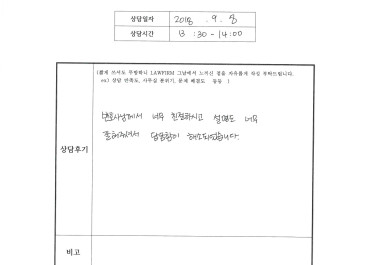 상담일자 2018. 9. 8
상담시간 13:30-14:00
(짧게 쓰셔도 무방하니 LAWFIRM 그날에서 느끼신 점을 자유롭게 작성 부탁드립니다.
ex) 상담 만족도, 사무실 분위기, 문제 해결도 등등 )
상담후기
변호사님께서 너무 친절하시고 설명도 너무
잘해주셔서 답답함이 해소되었습니다.
비고